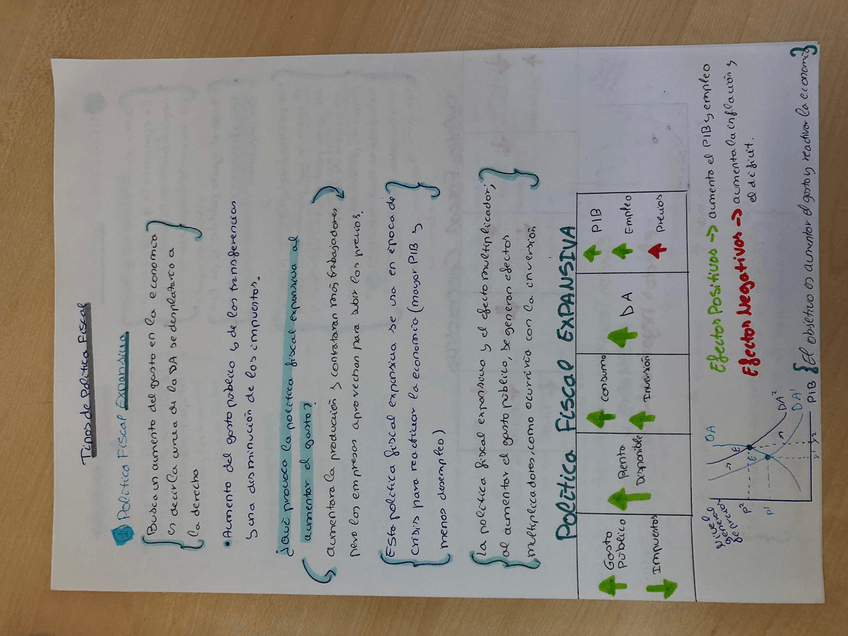 Tipos de Política Fiscal
Política Fiscal Expansiva
Busca un aumento del gasto en la economía
es decir la curva de la DA se desplazara a
la derecha
• Aumento del gasto público y de las transferencias
y una disminución de los impuestos.
¿Qué provoca la política fiscal expansiva al
aumentar el gasto?
aumentara la producción y contrataran más trabajadores
pero las empresas aprovechan para subir los precios.
Esta política fiscal expansiva se usa en época de
crisis para reactivar la economía (mayor PIB y
menos desempleo)
La política fiscal expansiva y el efecto multiplicador,
al aumentar el gasto público, se generan efectos
multiplicadores, como ocurriría con la inversión
Política Fiscal EXPANSIVA
↑ Gasto Público
↓ Impuestos
↑ Renta Disponible
↑ Consumo
↑ Inversión
↑ DA
↑ PIB
↑ Empleo
↑ Precios
Nivel
general
OA
DA²
DA¹
E
E
P²
P¹
Y¹
Y²
PIB
Efectos Positivos → aumenta el PIB y empleo
Efectos Negativos → aumenta la inflación y
el déficit.
El objetivo es aumentar el gasto y reactivar la economía